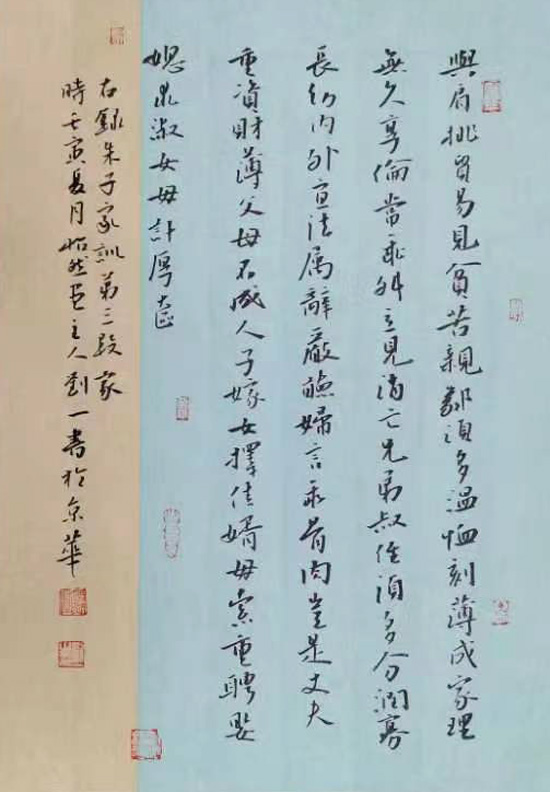 與肩挑貿易見貧苦親鄰須多溫恤刻薄成家理
無久享倫常乖舛立見消亡兄弟叔侄須多分潤寡
長幼內外宜法屬辭嚴聽婦言乖骨肉豈是丈夫
重資財薄父母不成人子嫁女擇佳婿毋索重聘娶
媳求淑女毋計厚奩
右錄朱子家訓第三段家
時壬寅夏月怡然居主人劉一書於京華